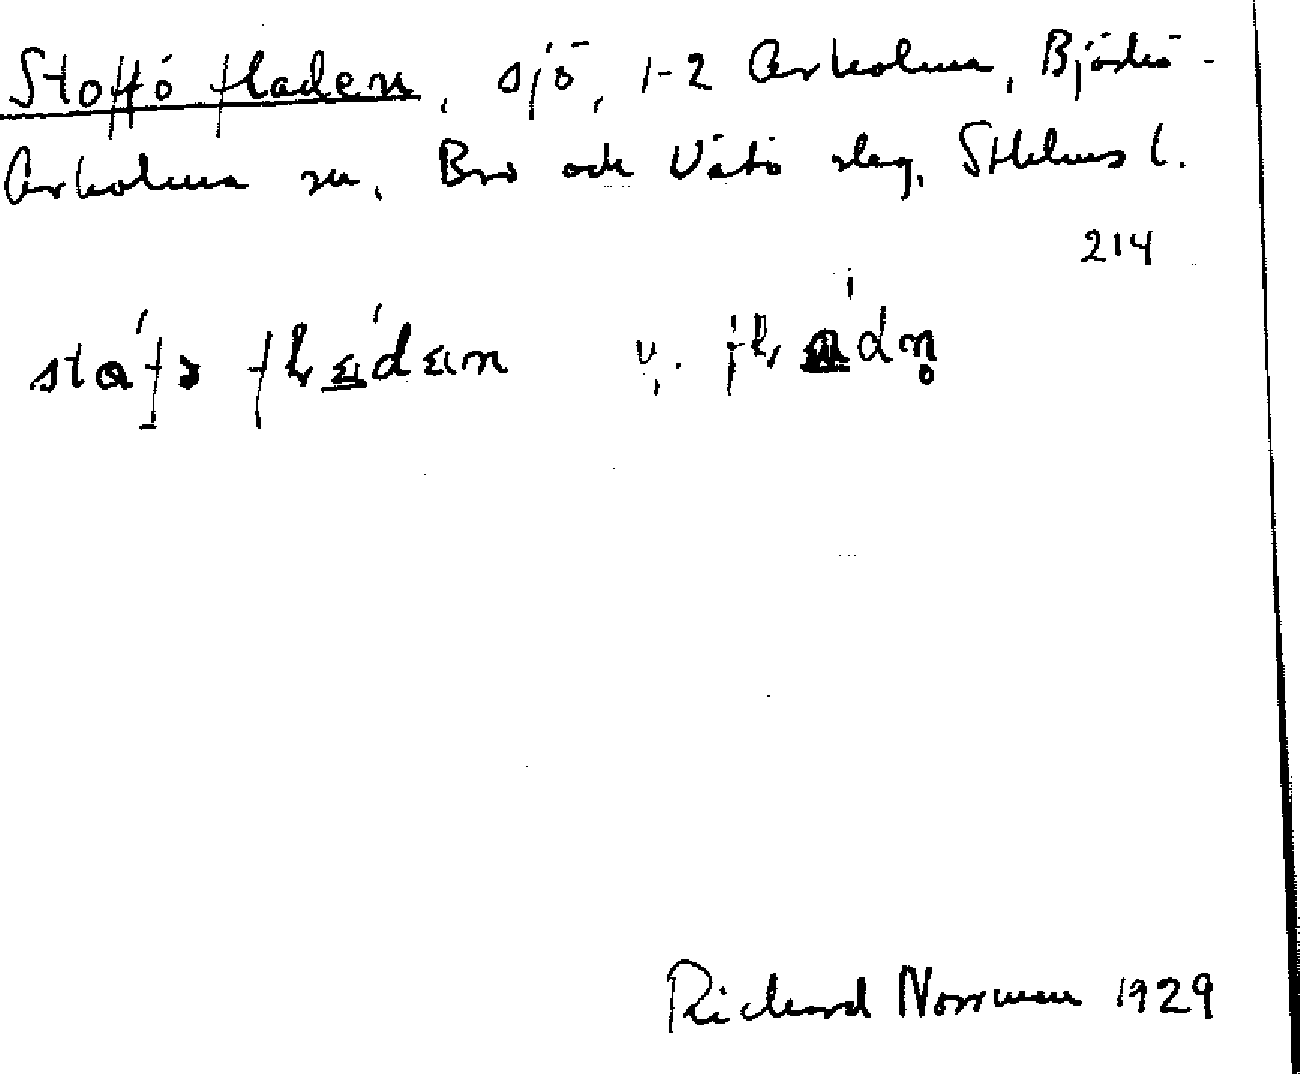 Stoffö fladen, sjö, 1-2 Arholma, Björkö-
Arholma sn, Bro och Vätö slag, Sthlms l.
214
v.
Richard Norrman 1929